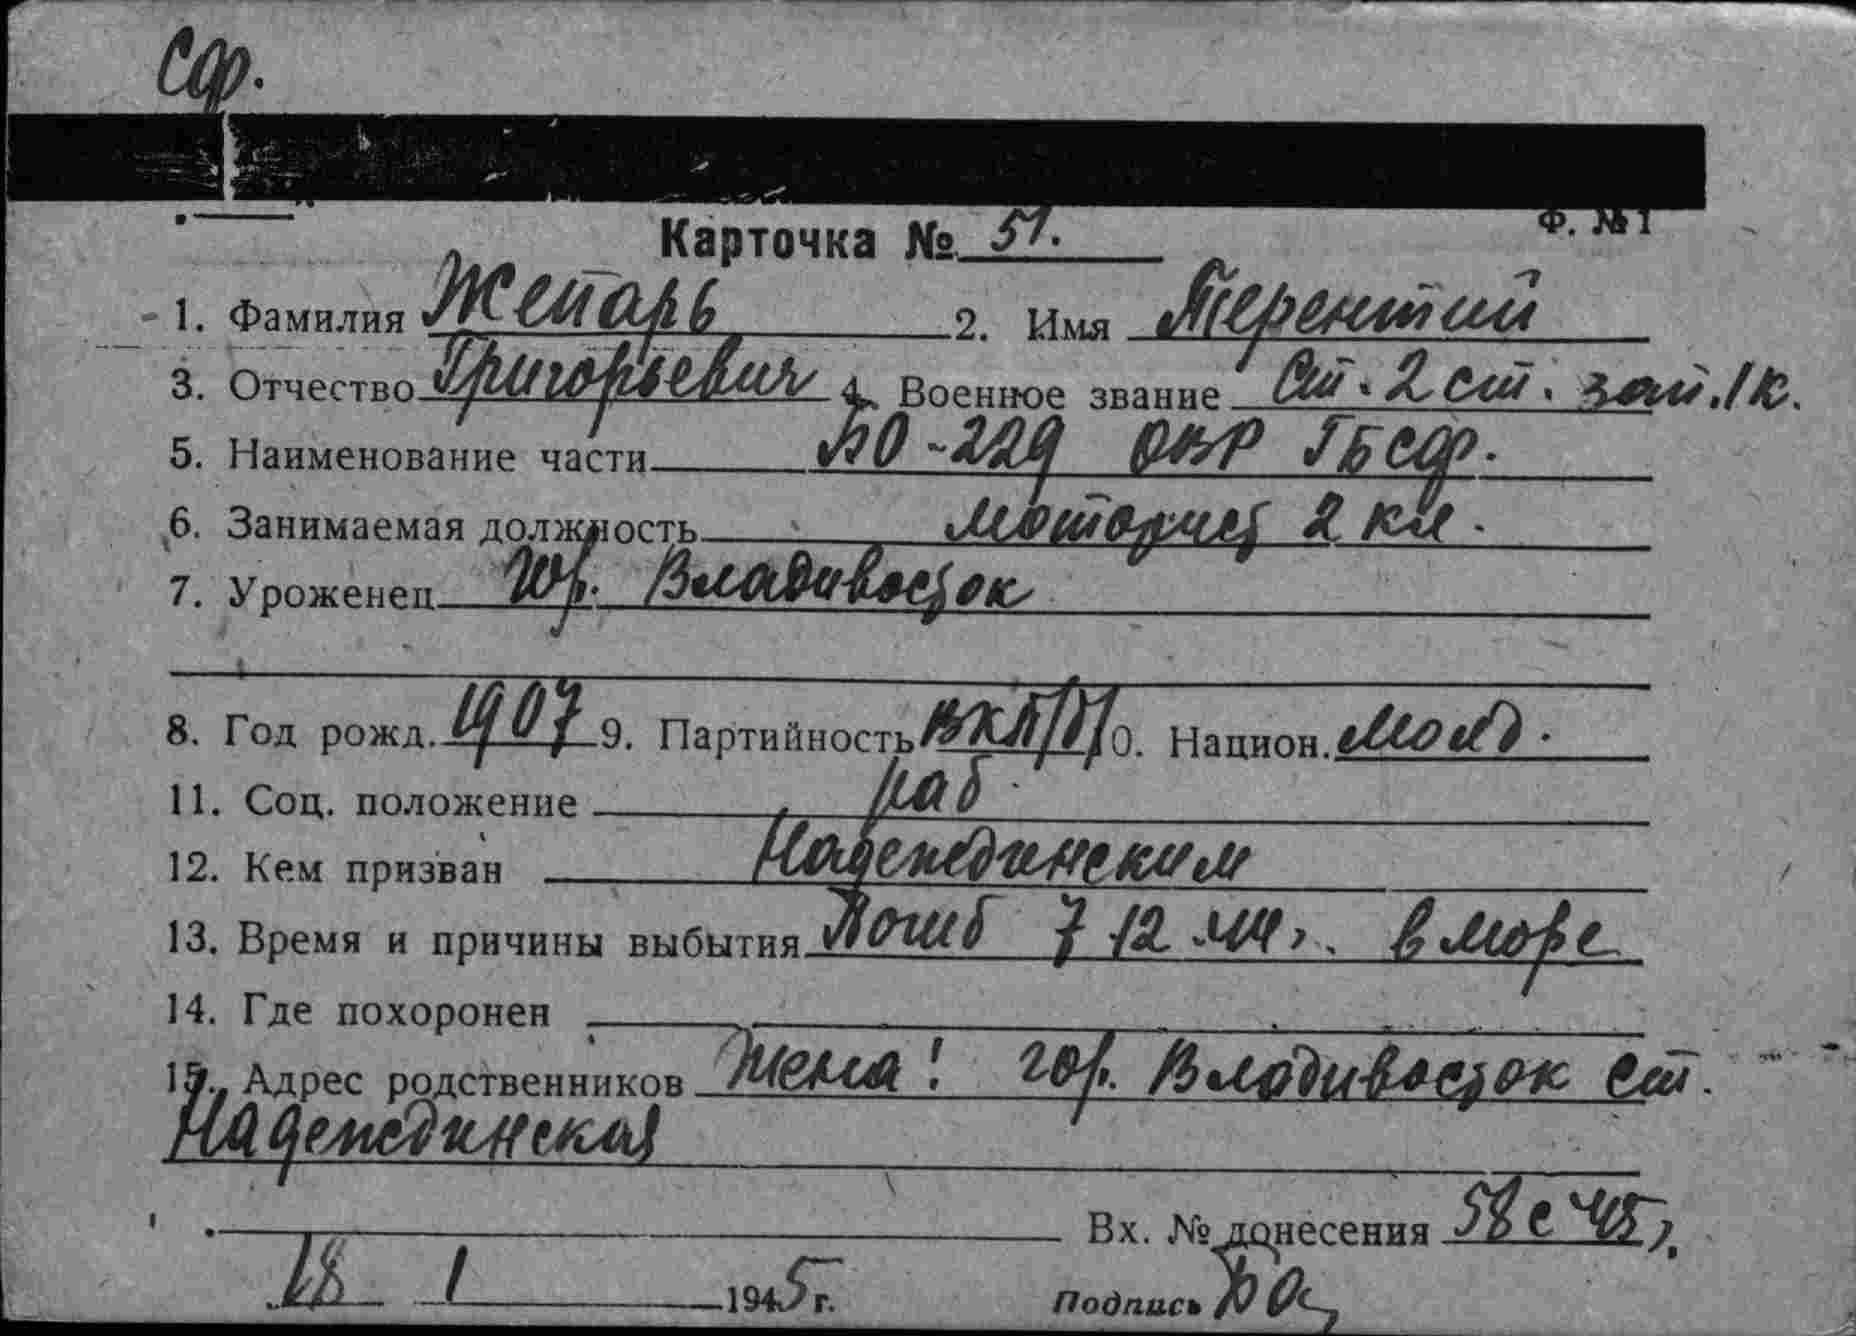 Сф.
Ф. № 1
Карточка № 51.
1. Фамилия Жепарь 2. Имя Терентий
3. Отчество Григорьевич 4. Военное звание Ст. 2 ст. зап. 1 к.
5. Наименование части БО-229 ОВР ГБ СФ.
6. Занимаемая должность моторист 2 кл.
7. Уроженец гор. Владивосток
8. Год рожд. 1907 9. Партийность ВКП/б/ 10. Национ. молд.
11. Соц. положение раб
12. Кем призван Надеждинским
13. Время и причины выбытия Погиб 7 12 44 г. в море
14. Где похоронен
15. Адрес родственников Жена: гор. Владивосток ст.
Надеждинская
Вх. № донесения 58 с 45 г.
18 1 1945 г. Подпись